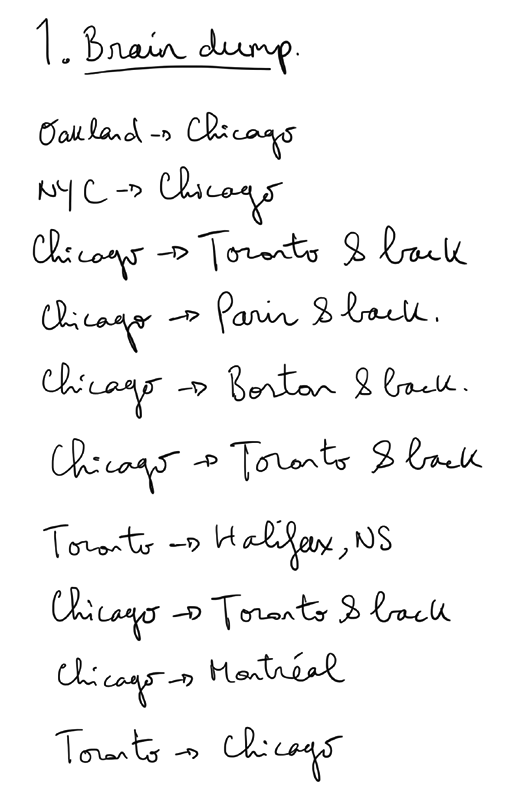 1. Brain dump.
Oakland → Chicago
NYC → Chicago
Chicago → Toronto & back
Chicago → Paris & back.
Chicago → Boston & back.
Chicago → Toronto & back
Toronto → Halifax, NS
Chicago → Toronto & back
Chicago → Montréal
Toronto → Chicago